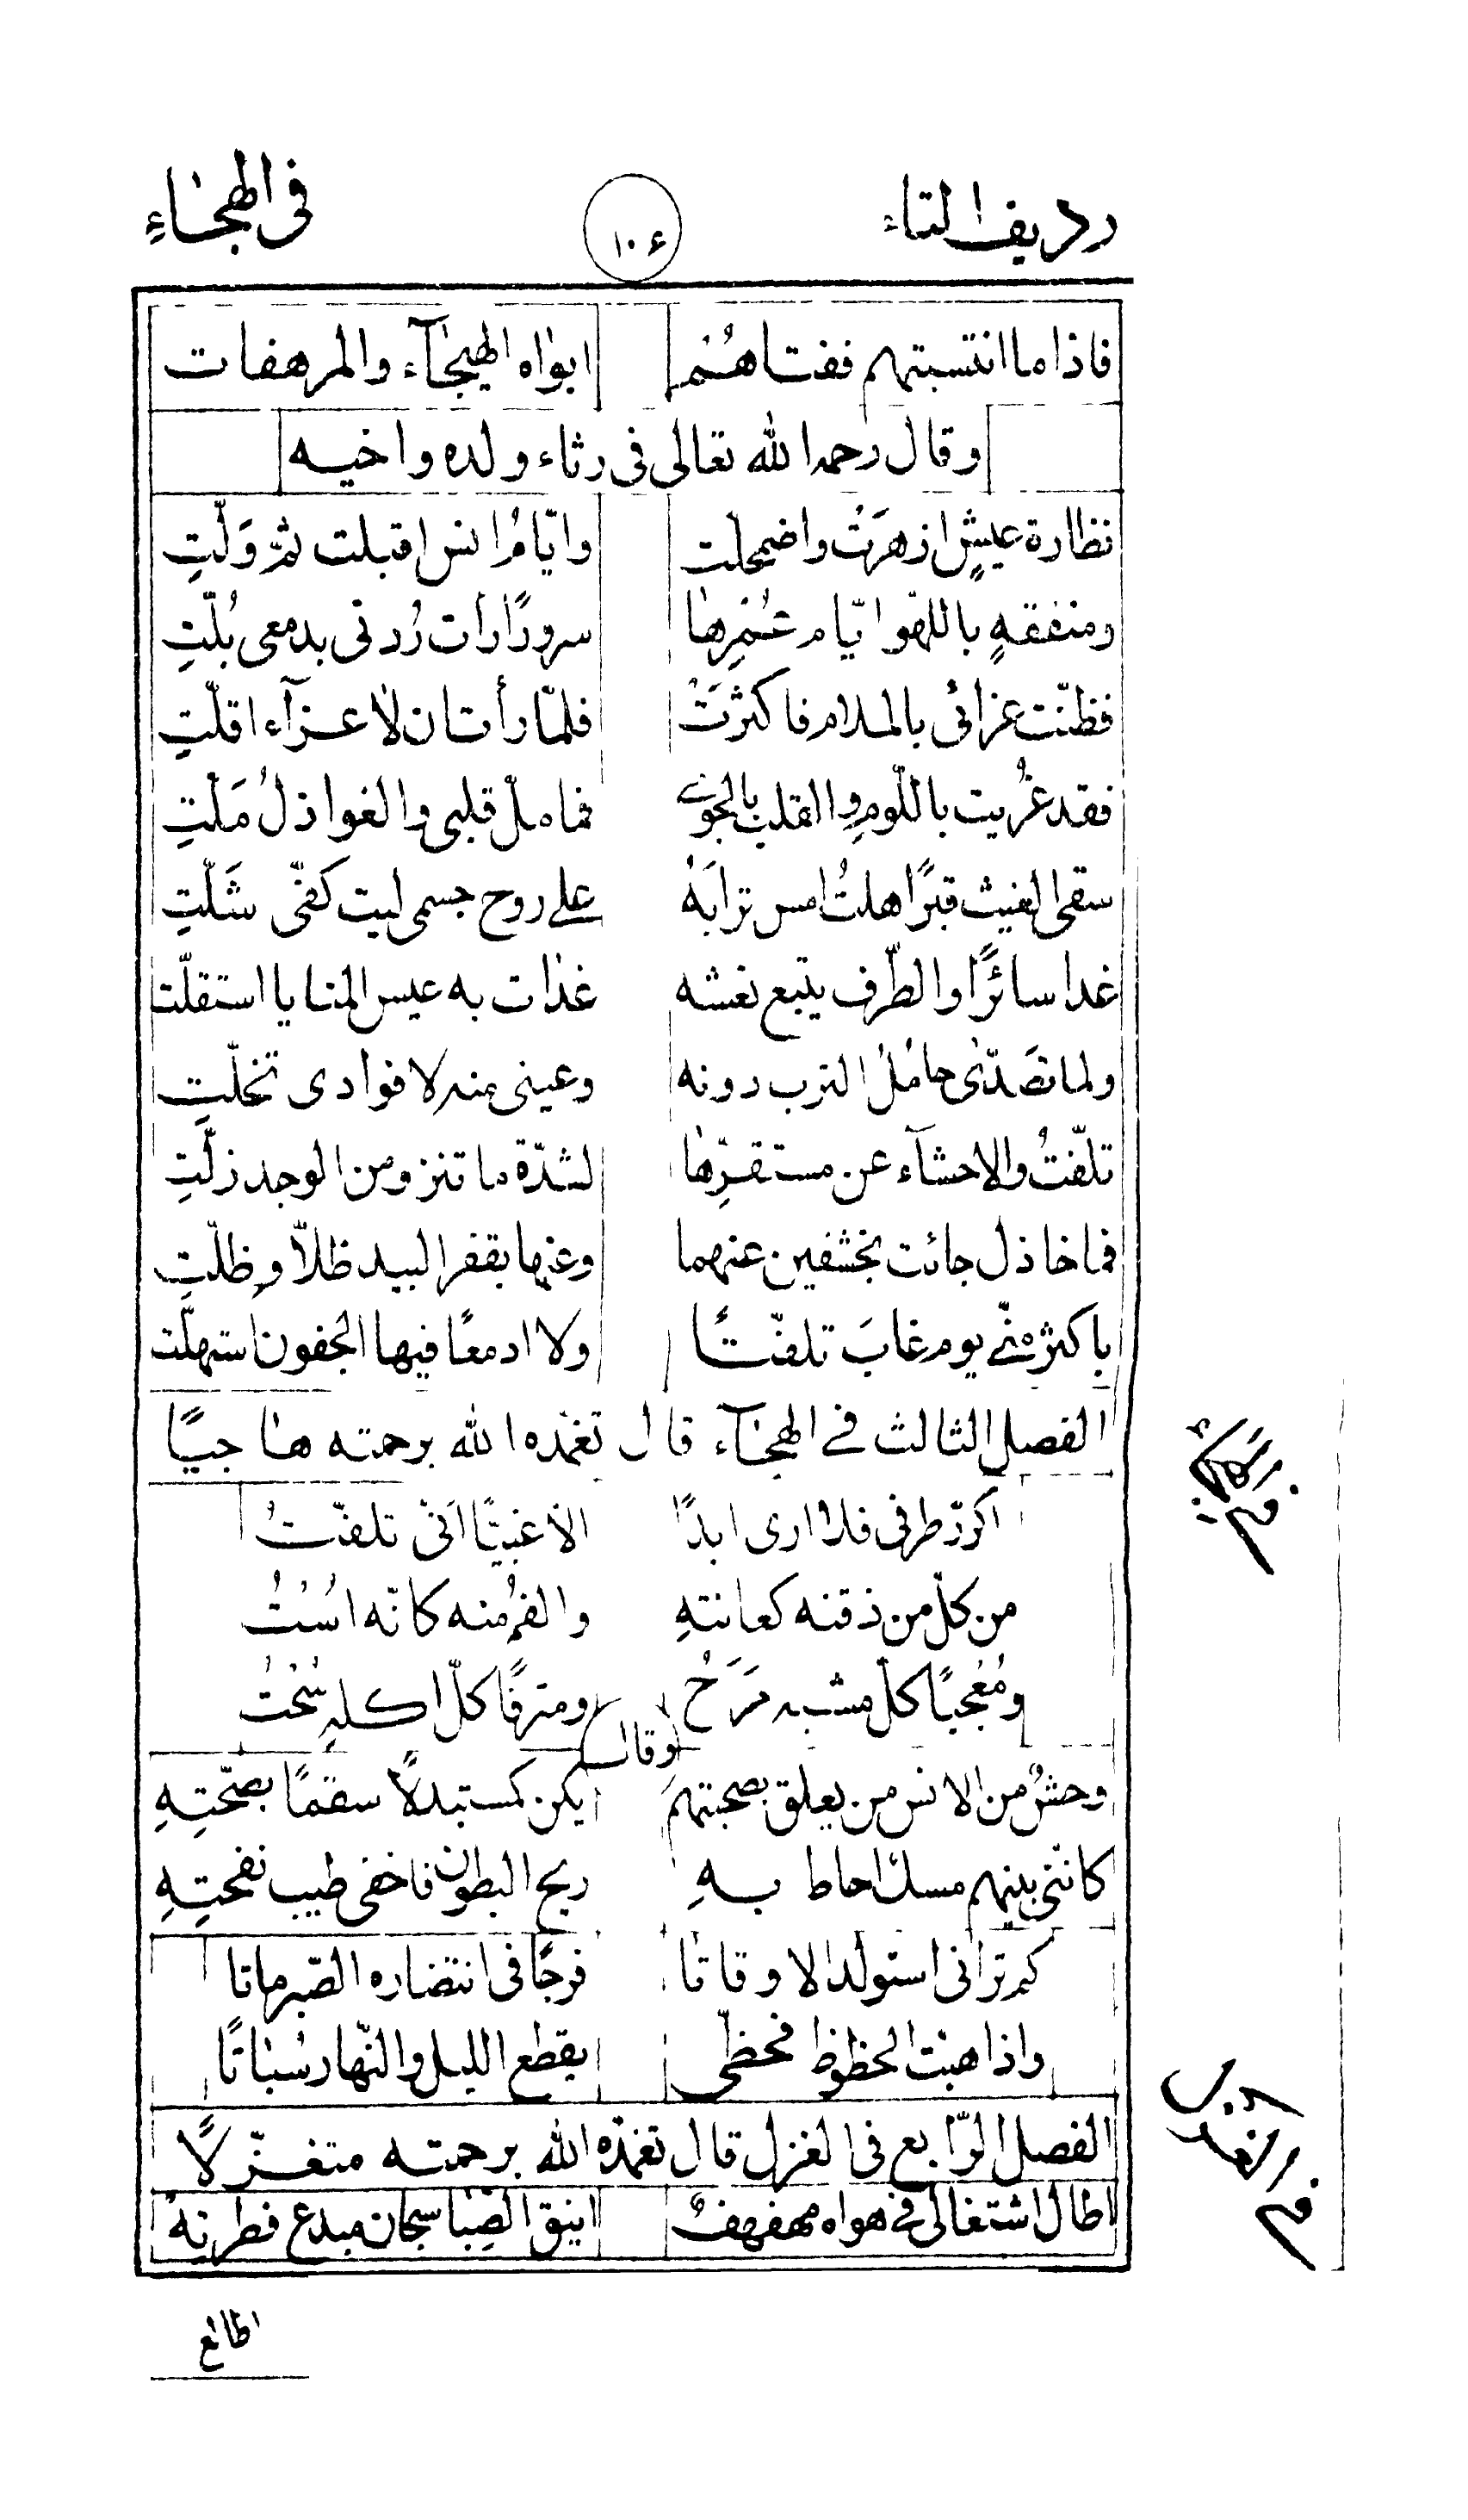 رديف التاء ١٠٤ في الهجاءِ
فاذا ما انتسبتهم ففتاهُم ابواه الهيجآء والمرهفات
وقال رحمه الله تعالى فى رثاء ولده واخيه
نظارة عيشٍ ازهرَت واضمحلت وايّامُ انس اقبلت ثمّ وَلّتِ
ومنفقهٍ باللهو ايّام عُمرِها سرورًا رأت رُدنى بدمعى بُلّتِ
فظنّت عزائى بالملام فاكثرَتْ فلمّا رأت ان لا عزآء اقلّتِ
فقد غُريت باللّومِ والقلب بالجوى فما ملّ قلبى والعواذلُ مَلّتِ
سقى الغيث قبرًا هلتُ امس ترابَهُ على روح جسمى ليت كفّى شَلّتِ
غدا سائرًا والطّرف يتبع نعشه غداة به عيس المنايا استقلّت
ولما تصَدّى حامُلُ الترب دونه وعينى منه لا فوادى تخلّتِ
تلفّتُ والاحشآء عن مستقرّها لشدّة ما تنزو من الوجد زلّتِ
فما خاذل جائت بخشفين عنهما وعنها بقفر البيد ظلاّ وظلّتِ
باكثر منّي يوم غابَ تلفّتًا ولا ادمعًا فيها الجفون استهلّت
الفصل الثالث في الهجآء قال تغمّده الله برحمته هاجيًا
اكرّر طرفى فلا ارى ابدًا الا غبيًّا انّى تلفّتُ
من كلّ من ذقنه كعانتهِ والفمُ منه كانّه اسْتُ
ومُعْجبًا كلّ مشيه مَرَحْ ومترفًا كلّ اكلهِ سُحْتُ
وقال
وحشٌ من الانس من يعلق بصحبتهم يكن كمستبدلاً سقمًا بصحّتِهِ
كانّنى بينهم مسك احاط بهِ ريح البطون فاخفى طيب نفحتِهِ
كم ترانى استولد الاوقاتا فرجًا فى انتضاره الصّبر ماتا
واذا هبّت الحظوظ فحظّي يقطع الليل والنّهار سُباتًا
الفصل الرّابع فى الغزل قال تغمّده الله برحمته متغزّلاً
اطال اشتغالى في هواه مهفهفٌ انيق الصِبا سبحان مبدع فطرتهُ